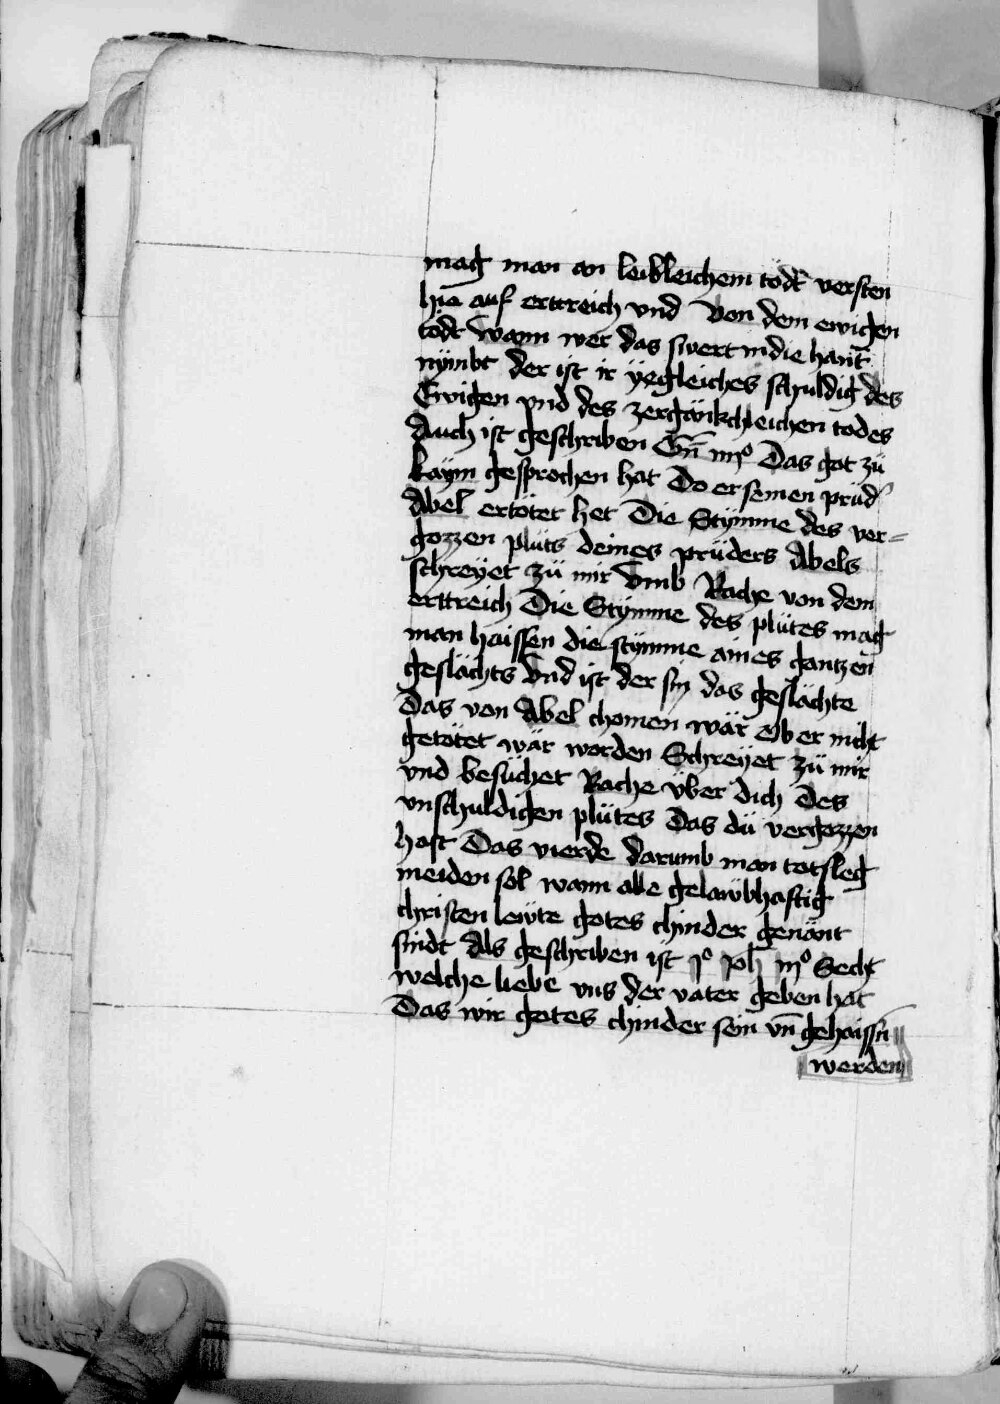 mag man an leibleichem tödt versten
hie auf ertreich vnd Von dem ewigen
tödt Wann wer das swert in die hant
nymbt der ist ir ÿegleiches schuldig des
Ewigen vnd des zergänkchleichen todes
Auch ist geschriben Gn̄ iiijº Das got zü
kaÿm gesprochen hat Do er seinen prüd'
Abel ertötet het Die Stÿmme des ver=
gozzen plüts deines prüders Abels
schreÿet zü mir Vmb Rache von dem
erttreich Die Stÿmme des plütes mag
man haissen die stÿmme aines gantzen
geslächts Vnd ist der sin das geslächte
Das von Abel chomen wär Ob er nicht
getötet wär worden Schreÿet zü mir
vnd besüchet Rache über dich Des
vnschuldigen plütes Das dü vergozzen
hast Das vierde darumb man totsleg
meiden sol wann alle gelawbhaftig
christen lewte gotes chinder genänt
sindt Als geschriben ist jº joh iijº Secht
welche liebe vns der vater geben hat
Das wir gotes chinder sein vn̄ gehaissn
werden